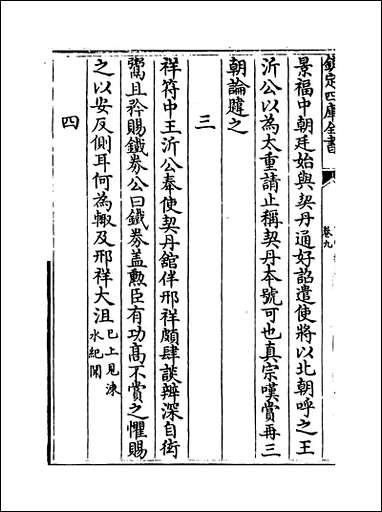 欽定四庫全書
卷九
景福中朝廷始與契丹通好詔遣使將以北朝呼之王
沂公以為太重請止稱契丹本號可也真宗嘆賞再三
朝論韙之
三
祥符中王沂公奉使契丹館伴邢祥頗肆談辨深自衒
鬻且矜賜鐵券公曰鐵券盖勲臣有功髙不賞之懼賜
之以安反側耳何為輙及邢祥大沮已上見涑
水紀聞
四